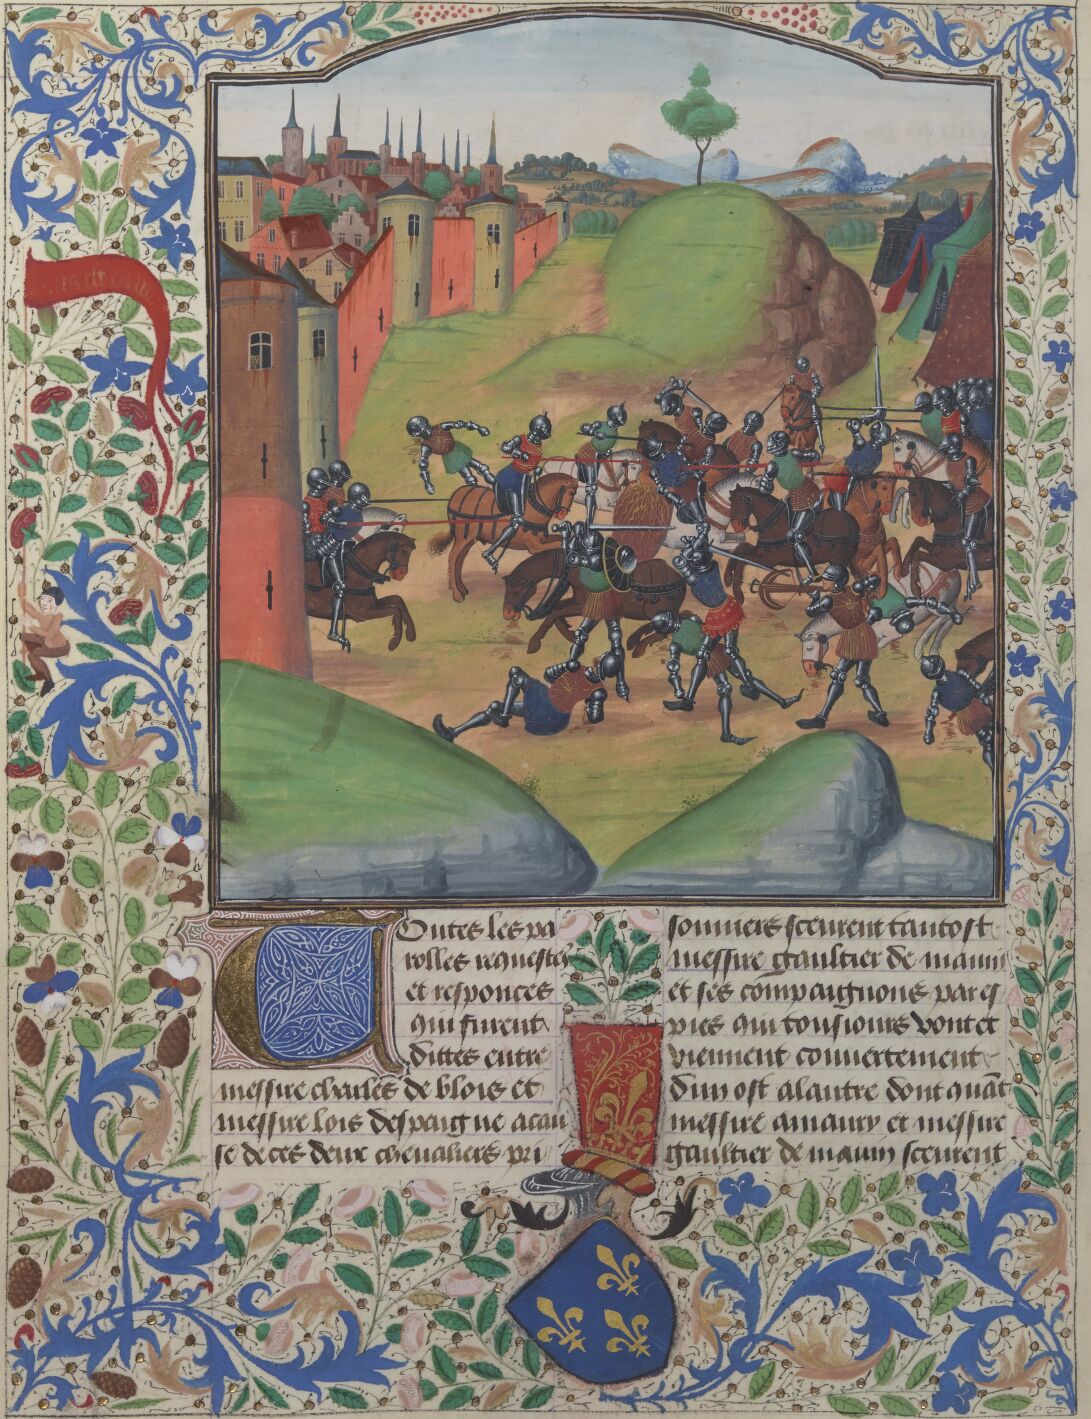 Toutes les pa
rolles requestes
et responces
qui furent
dittes entre
messire charles de blois et
messire lois despaigne a cau
se de ces deux chevaliers pri
sonniers sceurent tantost
messire gaultier de maun
et ses compaignons par es
pies qui tousiours vont et
viennent couvertement
dun ost a lautre dont quāt
messire amaury et messire
gaultier de maun sceurent